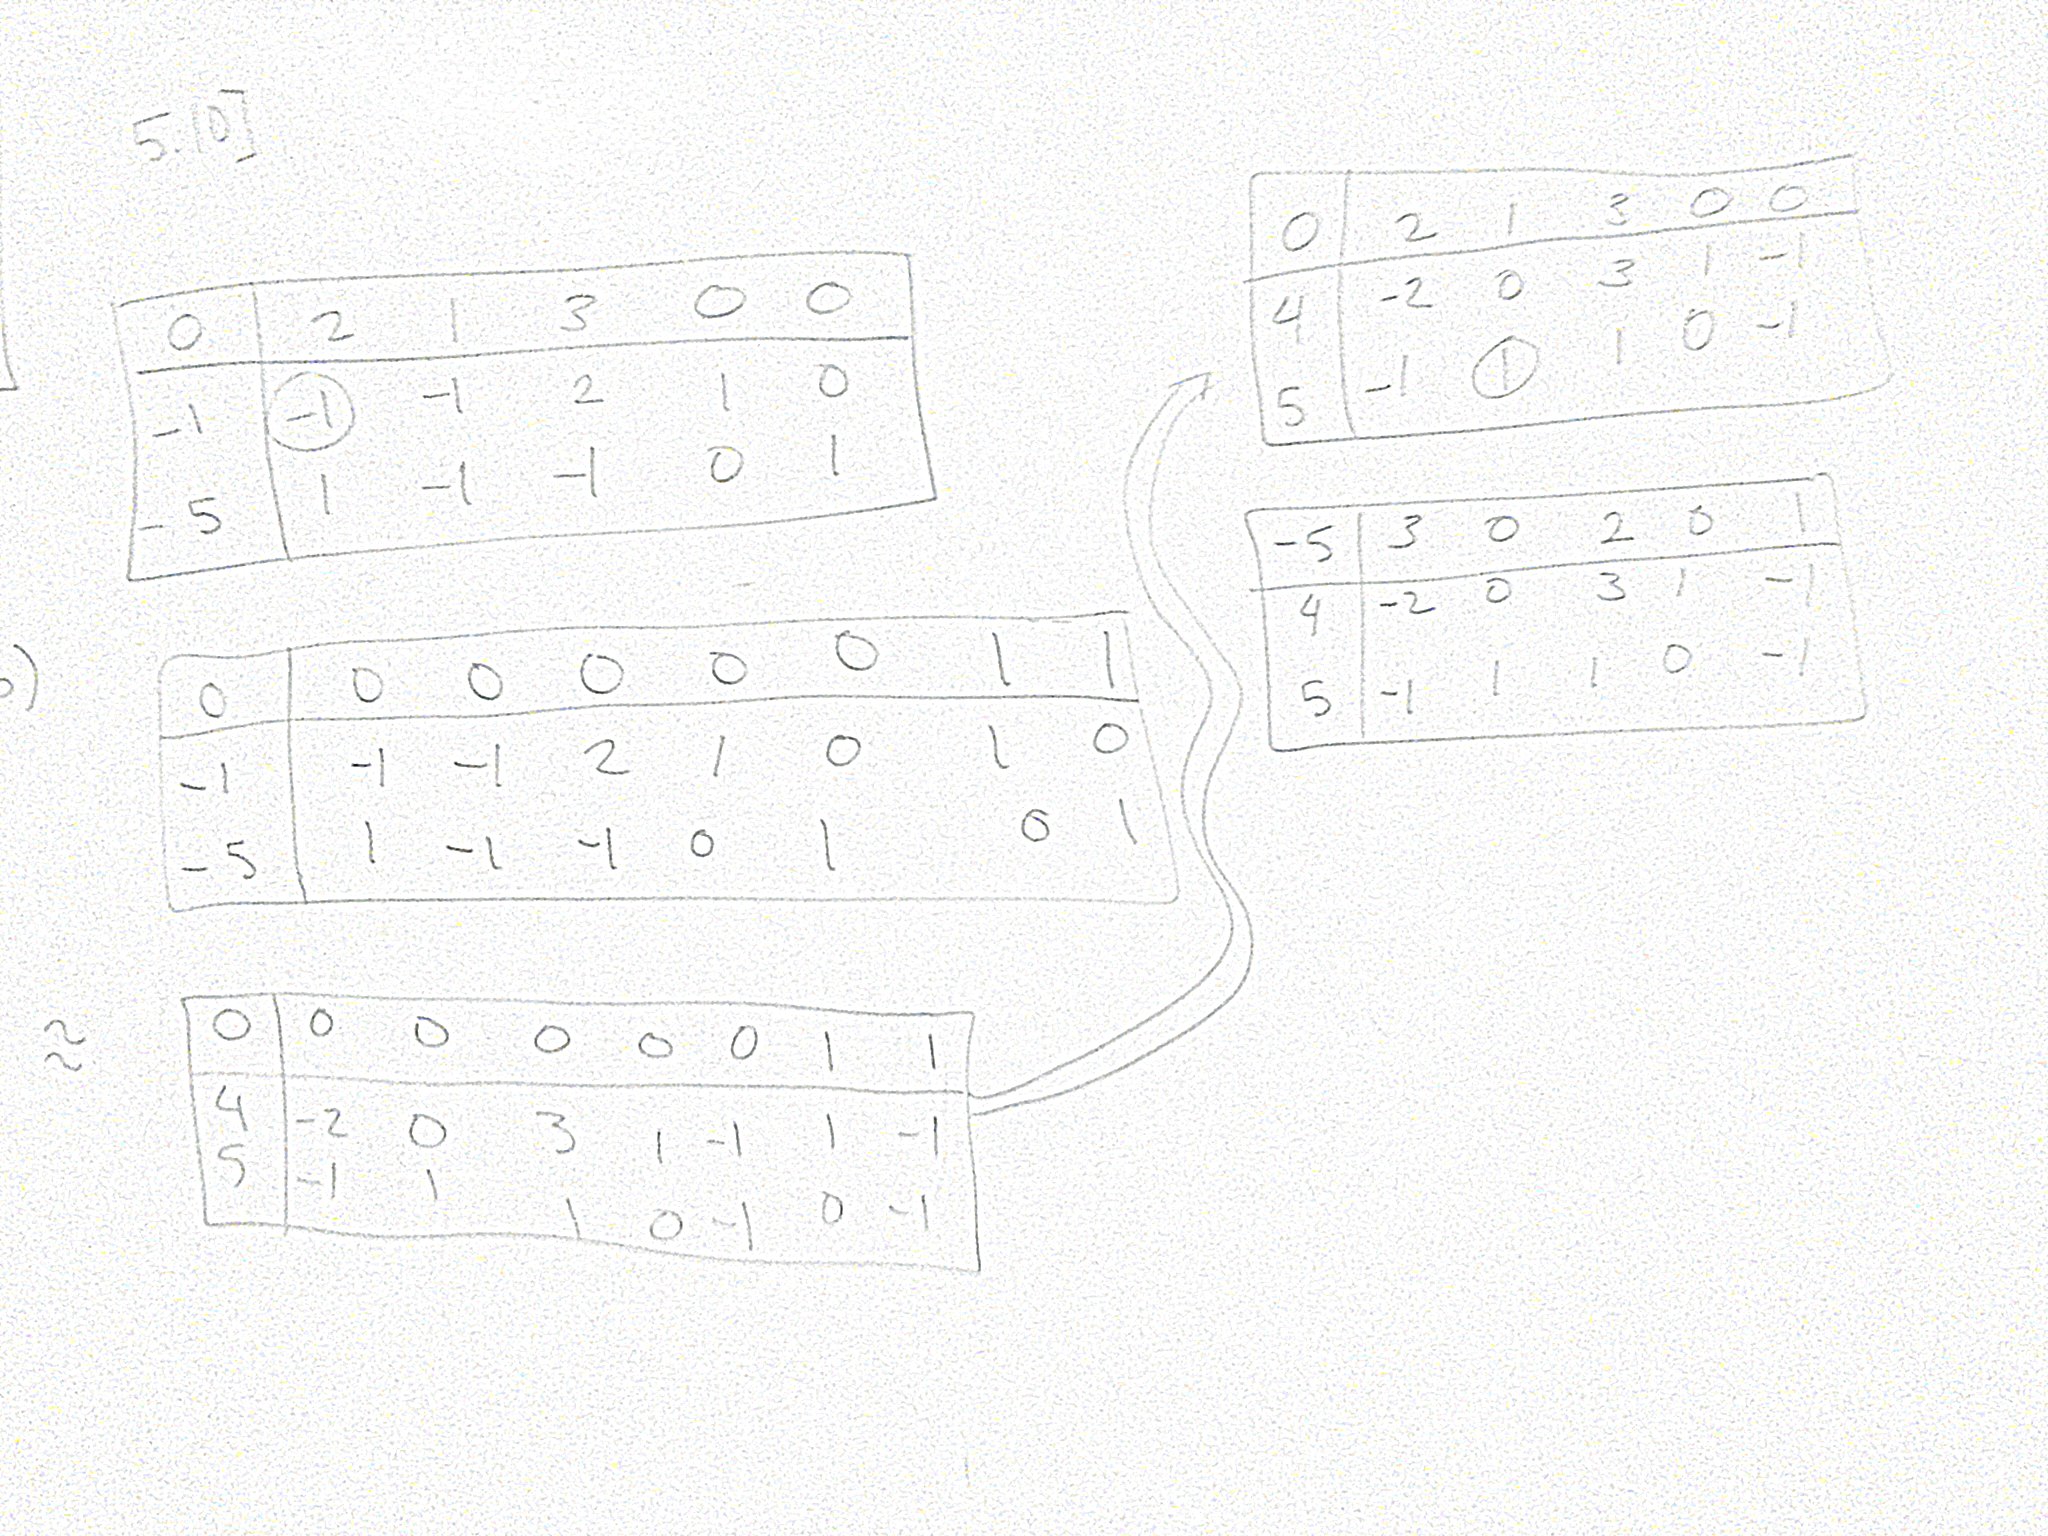 5.10]
0 2 1 3 0 0
-1 -1 -1 2 1 0
-5 1 -1 -1 0 1
0 0 0 0 0 0 1 1
-1 -1 -1 2 1 0 1 0
-5 1 -1 -1 0 1 0 1
0 0 0 0 0 0 1 1
4 -2 0 3 1 -1 1 -1
5 -1 1 1 0 -1 0 -1
0 2 1 3 0 0
4 -2 0 3 1 -1
5 -1 1 1 0 -1
-5 3 0 2 0 1
4 -2 0 3 1 -1
5 -1 1 1 0 -1